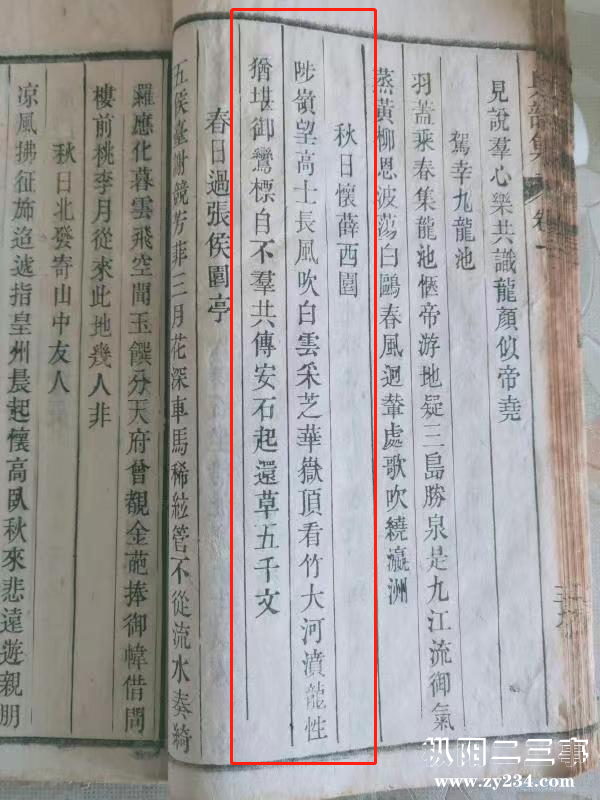 集卷一
見說羣心樂共識龍顏似帝堯
駕幸九龍池
羽蓋乘春集龍池愜帝游地疑三島勝泉是九江流御氣
蒸黃柳恩波蕩白鷗春風迴輦處歌吹繞瀛洲
秋日懷薛西園
陟嶺望高士長風吹白雲采芝華嶽頂看竹大河濆龍性
猶堪御鸞標自不羣共傳安石起還草五千文
春日過張侯園亭
五侯臺榭鏡芳菲三月花深車馬稀絃管不從流水奏綺
羅應化暮雲飛空聞玉饌分天府曾覩金葩捧御幃借問
樓前桃李月從來此地幾人非
秋日北發寄山中友人
凉風拂征斾迢遞指皇州晨起懷高臥秋來悲遠遊親朋
枞阳二三事
www.zy234.com